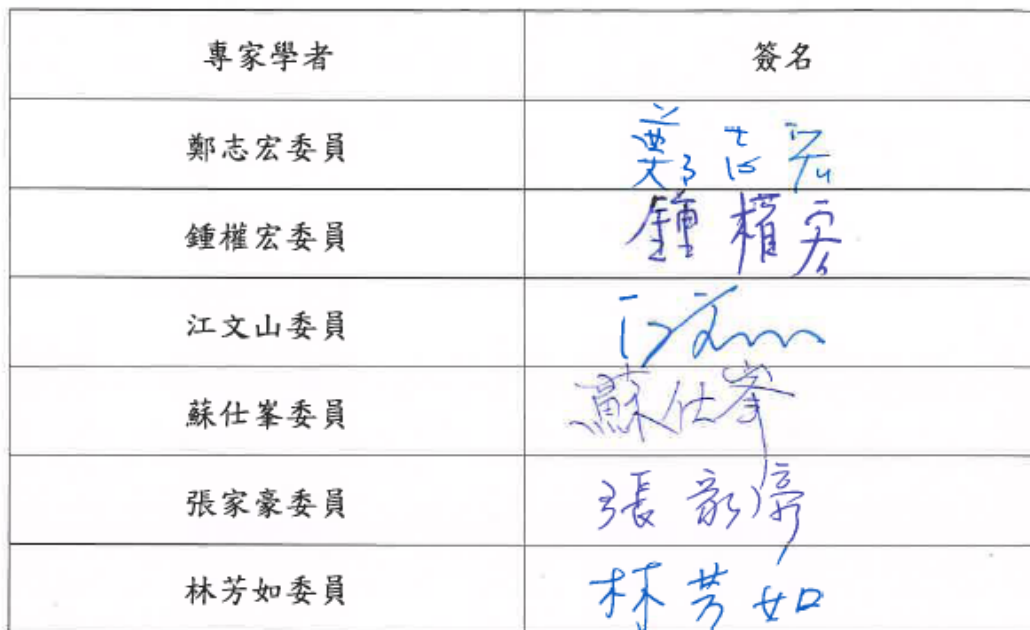 專家學者 簽名
鄭志宏委員 鄭志宏
鍾權宏委員 鍾權宏
江文山委員 江文山
蘇仕峯委員 蘇仕峯
張家豪委員
林芳如委員 林芳如